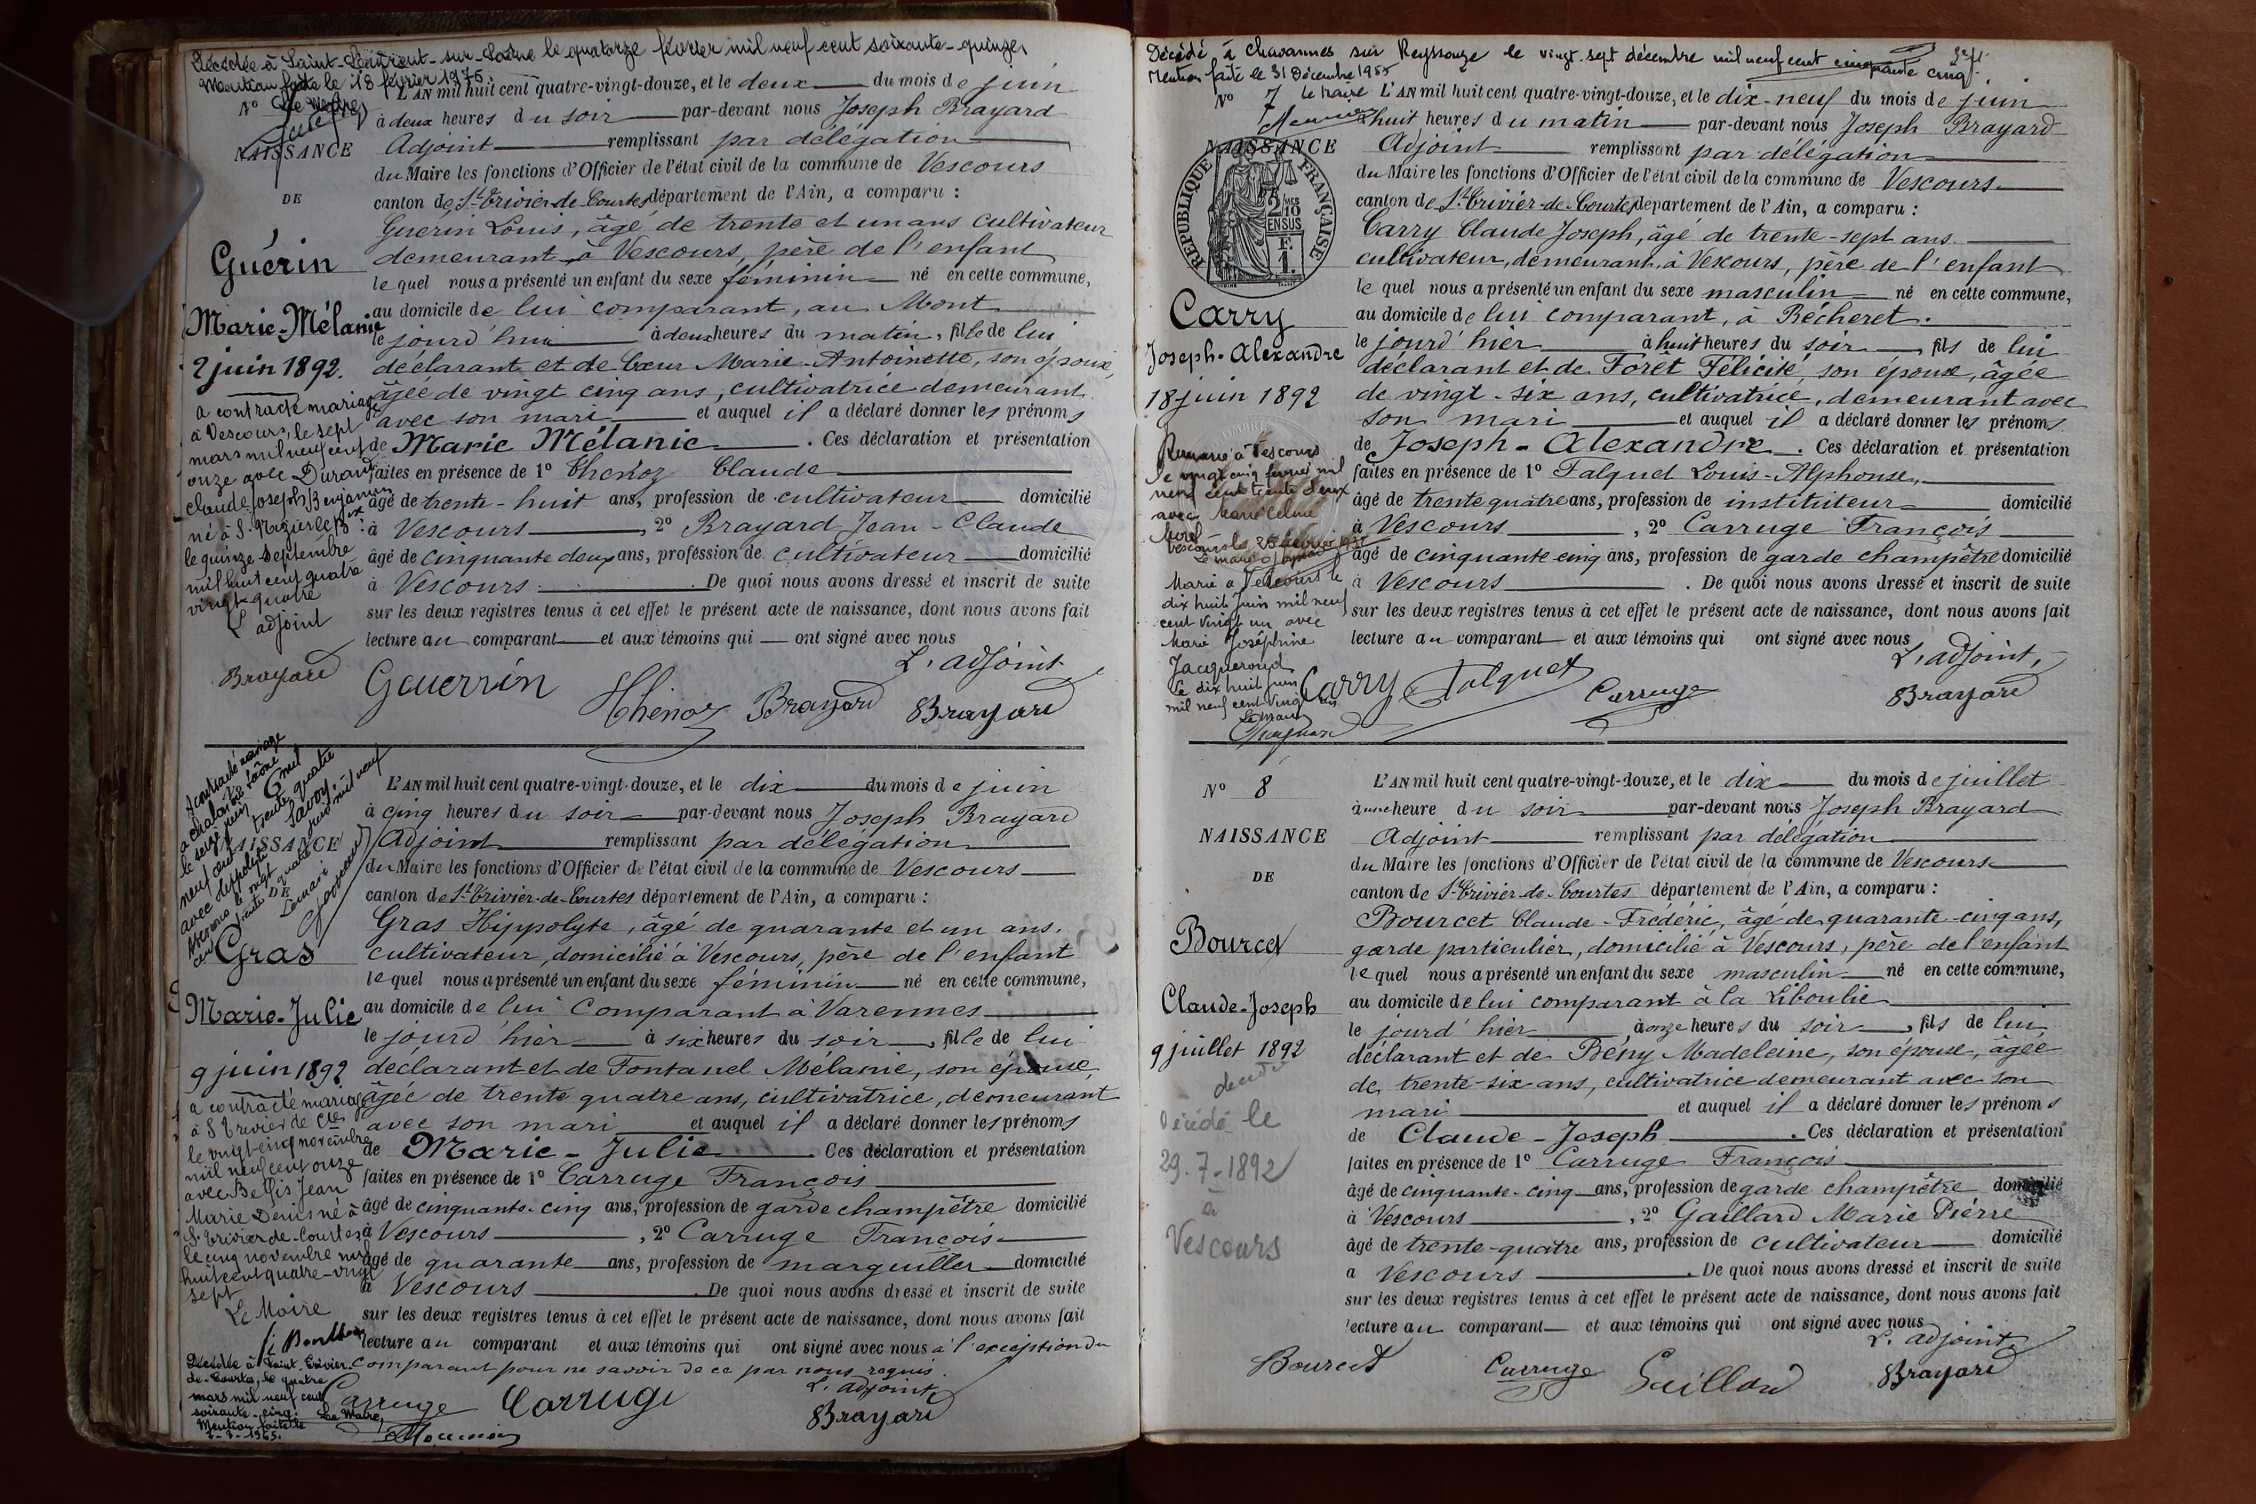 Décédée à Saint-Laurent-sur-Saône le quatorze février mil neuf cent soixante-quinze.
Mention faite le 18 février 1975.
Le Maire,
N°
NAISSANCE
DE
Guérin
Marie-Mélanie
2 juin 1892.
a contracté mariage
à Vescours, le sept
mars mil neuf cent
onze avec Durand
Claude Joseph Benjamin
né à S. Nizier le Bx
le quinze septembre
mil huit cent quatre
vingt-quatre
L'adjoint
Brayard
L'AN mil huit cent quatre-vingt-douze, et le deux du mois de juin
à deux heures du soir par-devant nous Joseph Brayard
Adjoint remplissant par délégation
du Maire les fonctions d'Officier de l'état civil de la commune de Vescours
canton de St Trivier-de-Courtes département de l'Ain, a comparu :
Guérin Louis, âgé de trente et un ans cultivateur
demeurant à Vescours, père de l'enfant
lequel nous a présenté un enfant du sexe féminin né en cette commune,
au domicile de lui comparant, au Mont
le jourd'hui à deux heures du matin, fille de lui
déclarant et de Cœur Marie-Antoinette, son épouse,
âgée de vingt cinq ans, cultivatrice demeurant
avec son mari et auquel il a déclaré donner les prénoms
de Marie Mélanie. Ces déclaration et présentation
faites en présence de 1° Thenoz Claude
âgé de trente-huit ans, profession de cultivateur domicilié
à Vescours, 2° Brayard Jean-Claude
âgé de cinquante deux ans, profession de cultivateur domicilié
à Vescours. De quoi nous avons dressé et inscrit de suite
sur les deux registres tenus à cet effet le présent acte de naissance, dont nous avons fait
lecture au comparant et aux témoins qui ont signé avec nous
L'adjoint
Guerrin Thenoz Brayard Brayard
A contracté mariage
à Chalon sur Saône
le seize juin mil
neuf cent trente quatre
avec Hippolyte Savoy
Vescours le vingt juin mil neuf
cent trente quatre
Le maire
NAISSANCE
DE
Gras
Marie-Julie
9 juin 1892
a contracté mariage
à S Trivier de Ctes
le vingt-cinq novembre
mil neuf cent onze
avec Bellis Jean
Marie Denis né à
S. Trivier-de-Courtes
le cinq novembre mil
huit cent quatre-vingt
sept
Le Maire
Décédée à Saint-Trivier-
de-Courtes, le quatre
mars mil neuf cent
soixante-cinq.
Mention faite le
Le Maire,
L'AN mil huit cent quatre-vingt-douze, et le dix du mois de juin
à cinq heures du soir par-devant nous Joseph Brayard
Adjoint remplissant par délégation
du Maire les fonctions d'Officier de l'état civil de la commune de Vescours
canton de St Trivier-de-Courtes département de l'Ain, a comparu :
Gras Hippolyte, âgé de quarante et un ans,
cultivateur, domicilié à Vescours, père de l'enfant
lequel nous a présenté un enfant du sexe féminin né en cette commune,
au domicile de lui comparant à Varennes
le jourd'hier à six heures du soir, fille de lui
déclarant et de Fontanel Mélanie, son épouse,
âgée de trente quatre ans, cultivatrice, demeurant
avec son mari et auquel il a déclaré donner les prénoms
de Marie-Julie. Ces déclaration et présentation
faites en présence de 1° Carruge François
âgé de cinquante-cinq ans, profession de garde champêtre domicilié
à Vescours, 2° Carruge François
âgé de quarante ans, profession de marguiller domicilié
à Vescours. De quoi nous avons dressé et inscrit de suite
sur les deux registres tenus à cet effet le présent acte de naissance, dont nous avons fait
lecture au comparant et aux témoins qui ont signé avec nous à l'exception du
comparant pour ne savoir de ce par nous requis.
L'adjoint,
Carruge Carruge Brayard
Décédé à Chavannes sur Reyssouze le vingt-sept décembre mil neuf cent cinquante cinq.
Mention faite le 31 Décembre 1955
Le Maire
N° 7
NAISSANCE
REPUBLIQUE FRANÇAISE
2/10 EN SUS
1 F.
Carry
Joseph-Alexandre
18 juin 1892
Remarié à Vescours
le vingt cinq février mil
neuf cent trente deux
avec Marie Celine
Morel
Vescours le 25 février 1932
Le maire
Marié à Vescours le
dix huit Juin mil neuf
cent vingt un avec
Marie Joséphine
Jacqueroud
Le dix huit juin
mil neuf cent vingt un
Le Maire
L'AN mil huit cent quatre-vingt-douze, et le dix-neuf du mois de juin
à huit heures du matin par-devant nous Joseph Brayard
Adjoint remplissant par délégation
du Maire les fonctions d'Officier de l'état civil de la commune de Vescours
canton de St Trivier-de-Courtes département de l'Ain, a comparu :
Carry Claude Joseph, âgé de trente-sept ans
cultivateur, demeurant à Vescours, père de l'enfant
lequel nous a présenté un enfant du sexe masculin né en cette commune,
au domicile de lui comparant, à Bécheret.
le jourd'hier à huit heures du soir, fils de lui
déclarant et de Forêt Félicité, son épouse, âgée
de vingt-six ans, cultivatrice, demeurant avec
son mari et auquel il a déclaré donner les prénoms
de Joseph-Alexandre. Ces déclaration et présentation
faites en présence de 1° Falquet Louis-Alphonse,
âgé de trente quatre ans, profession de instituteur domicilié
à Vescours, 2° Carruge François
âgé de cinquante cinq ans, profession de garde champêtre domicilié
à Vescours. De quoi nous avons dressé et inscrit de suite
sur les deux registres tenus à cet effet le présent acte de naissance, dont nous avons fait
lecture au comparant et aux témoins qui ont signé avec nous
L'adjoint,
Carry Falquet Carruge Brayard
N° 8
NAISSANCE
DE
Bourcet
Claude-Joseph
9 juillet 1892
Décédé le
29-7-1892
à
Vescours
L'AN mil huit cent quatre-vingt-douze, et le dix du mois de juillet
à une heure du soir par-devant nous Joseph Brayard
Adjoint remplissant par délégation
du Maire les fonctions d'Officier de l'état civil de la commune de Vescours
canton de St Trivier-de-Courtes département de l'Ain, a comparu :
Bourcet Claude-Frédéric, âgé de quarante-cinq ans,
garde particulier, domicilié à Vescours, père de l'enfant
lequel nous a présenté un enfant du sexe masculin né en cette commune,
au domicile de lui comparant à la Liboulie
le jourd'hier à onze heures du soir, fils de lui
déclarant et de Bény Madeleine, son épouse, âgée
de trente-six ans, cultivatrice demeurant avec son
mari et auquel il a déclaré donner les prénoms
de Claude-Joseph. Ces déclaration et présentation
faites en présence de 1° Carruge François
âgé de cinquante-cinq ans, profession de garde champêtre domicilié
à Vescours, 2° Gaillard Marie Pierre
âgé de trente-quatre ans, profession de cultivateur domicilié
a Vescours. De quoi nous avons dressé et inscrit de suite
sur les deux registres tenus à cet effet le présent acte de naissance, dont nous avons fait
lecture au comparant et aux témoins qui ont signé avec nous
L'adjoint
Bourcet Carruge Gaillard Brayard